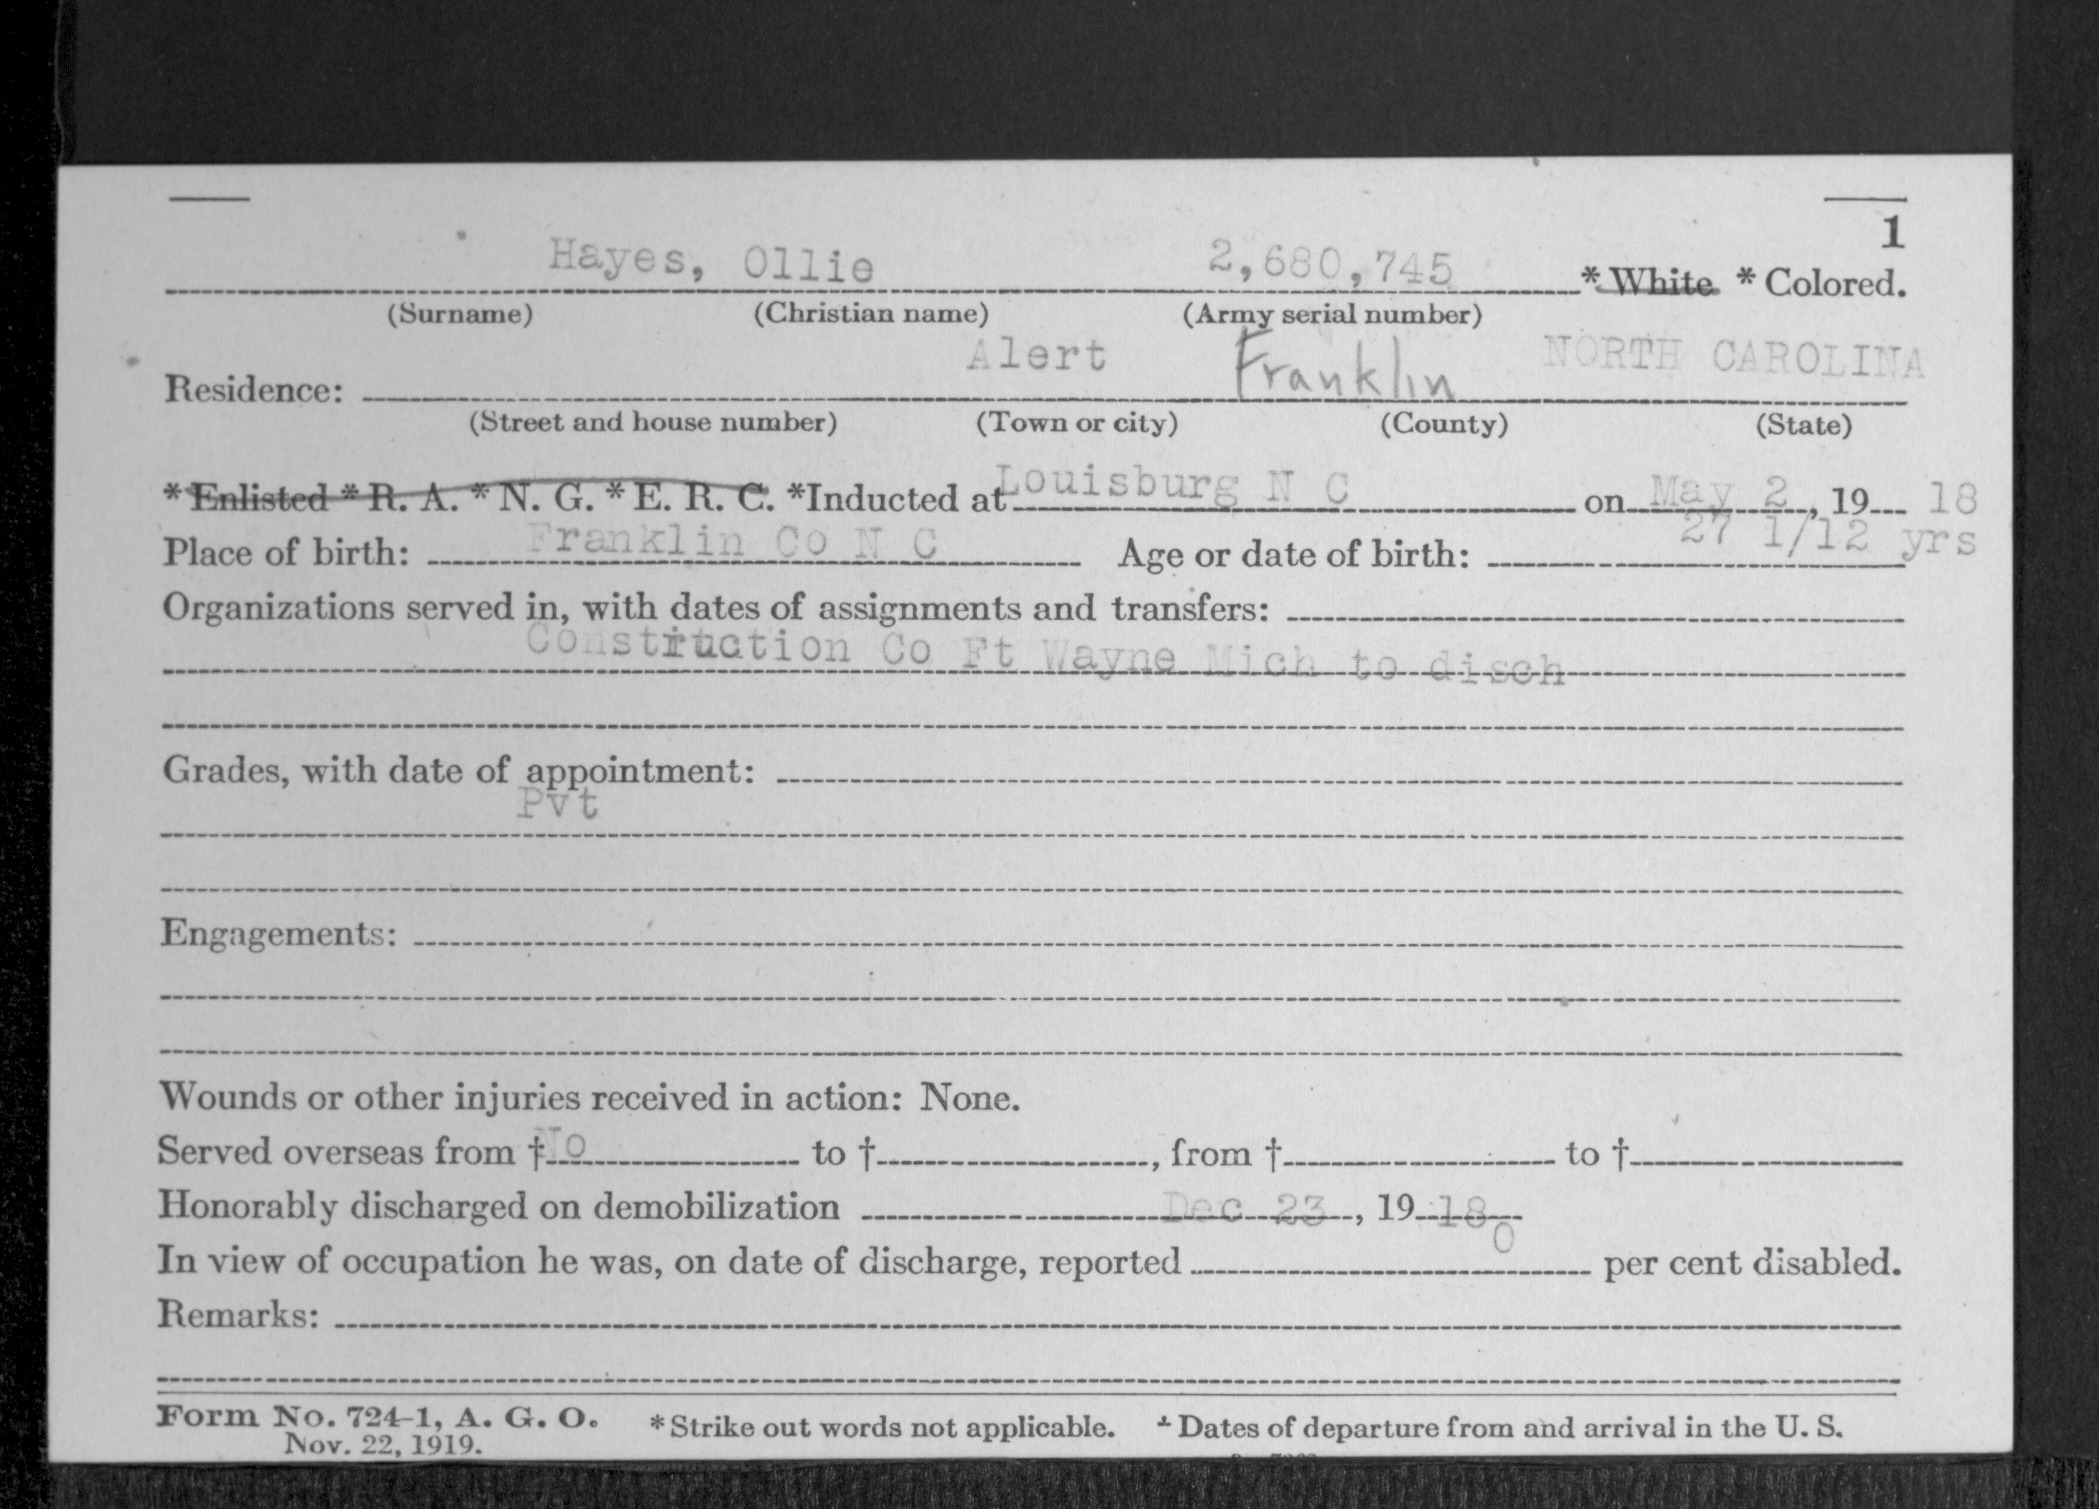 1
Hayes, Ollie 2,680,745 * White * Colored.
(Surname) (Christian name) (Army serial number)
Residence: Alert Franklin NORTH CAROLINA
(Street and house number) (Town or city) (County) (State)
* Enlisted * R. A. * N. G. * E. R. C. *Inducted at Louisburg N C on May 2, 19 18
Place of birth: Franklin Co N C Age or date of birth: 27 1/12 yrs
Organizations served in, with dates of assignments and transfers:
Construction Co Ft Wayne Mich to disch
Grades, with date of appointment:
Pvt
Engagements:
Wounds or other injuries received in action: None.
Served overseas from † No to †, from † to †
Honorably discharged on demobilization Dec 23, 19 18
In view of occupation he was, on date of discharge, reported 0 per cent disabled.
Remarks:
Form No. 724-1, A. G. O. * Strike out words not applicable. † Dates of departure from and arrival in the U. S.
Nov. 22, 1919.